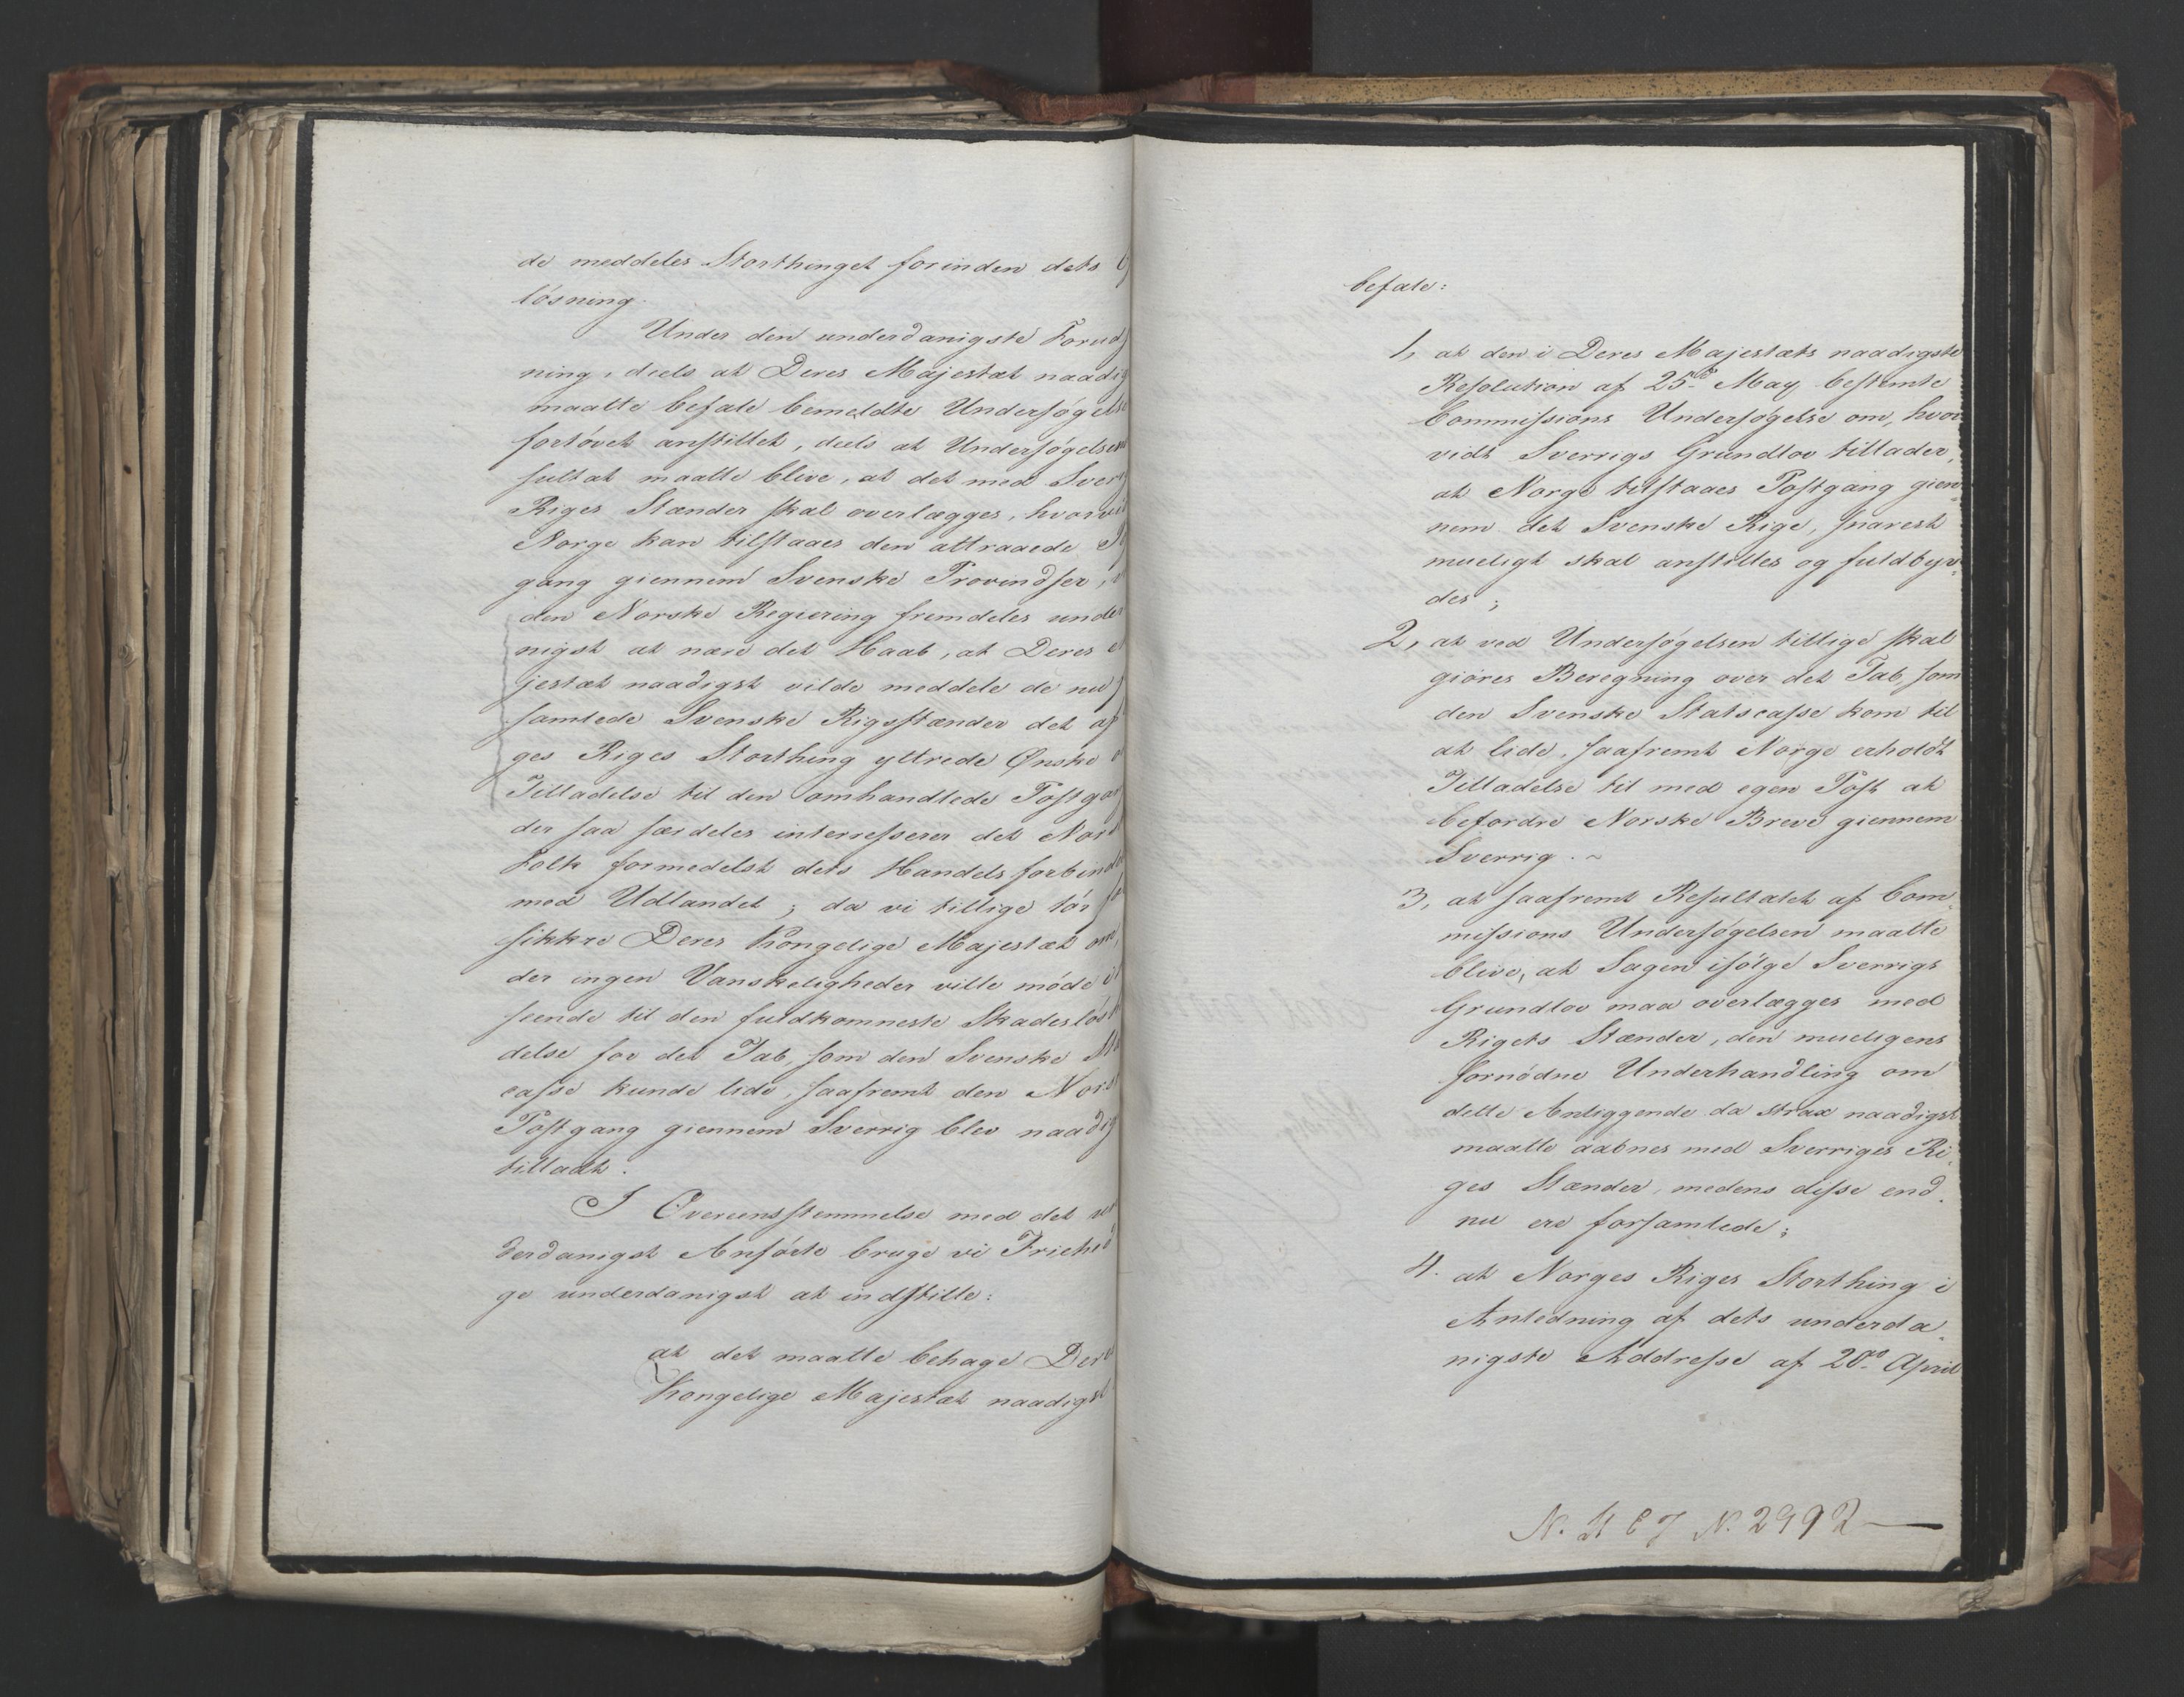 de meddeles Storthinget forinden dets
løsning.
Under den underdanigste Forud
ning, deels at Deres Majestæt naadig
maatte befale bemeldte Undersøgelse
fortøvet anstillet, deels at Undersøgelsens
sultat maatte blive, at det med Sver
Riges Stænder skal overlægges, hvorvit
Norge kan tilstaaes den attraaede
gang giennem Svenske Provindser,
den Norske Regiering fremdeles under
nigst at nære det Haab, at Deres
jestæt naadigst vilde meddele de nu
samlede Svenske Rigsstænder det af
ges Riges Storthing yttrede Ønske
Tilladelse til den omhandlede Postgan
der saa særdeles interresserer det Nors
Folk formedelst dets Handels forbinde
med Udlandet; da vi tillige tør
sikkre Deres Kongelige Majestæt om,
der ingen Vanskeligheder ville møde i
seende til den fuldkomneste Skadesløs
delse for det Tab, som den Svenske
casse kunde lide, saafremt den Norsk
Postgang giennem Sverrig blev naadig
tilladt.
I Overeensstemmelse med det un
derdanigst Anførte bruge vi Friehed
ge underdanigst at indstille:
at det maatte behage Dere
Kongelige Majestæt naadigst
befale:
1, at den i Deres Majestæts naadigste
Resolution af 25de May bestemte
Commissions Undersøgelse om, hvor
vidt Sverrigs Grundlov tillader,
at Norge tilstaaes Postgang gien-
nem det Svenske Rige, snarest
mueligt skal anstilles og fuldbyr-
des;
2, at ved Undersøgelsen tillige skal
giøres Beregning over det Tab, som
den Svenske Statscasse kom til
at lide, saafremt Norge erholdt
Tilladelse til med egen Post at
befordre Norske Breve giennem
Sverrig. ~
3, at saafremt Resultatet af Com-
missions Undersøgelsen maatte
blive, at Sagen ifølge Sverrigs
Grundlov maa overlægges med
Rigets Stænder, den mueligens
fornødne Underhandling om
dette Anliggende da strax naadigst
maatte aabnes med Sverriges Ri-
ges Stænder, medens disse end-
nu ere forsamlede;
4. at Norges Riges Storthing i
Anledning af dets underda-
nigste Addresse af 20de April
N. N. 2992